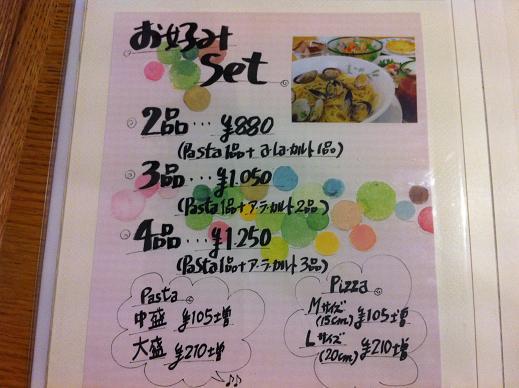 お好み
Set
2品・・・¥880
(Pasta1品+a・la・カルト1品)
3品・・・¥1.050
(Pasta1品+ア・ラ・カルト2品)
4品・・・¥1.250
(Pasta1品+ア・ラ・カルト3品)
Pasta
中盛 ¥105増
大盛 ¥210増
Pizza
Mサイズ
(15cm) ¥105増
Lサイズ
(20cm) ¥210増